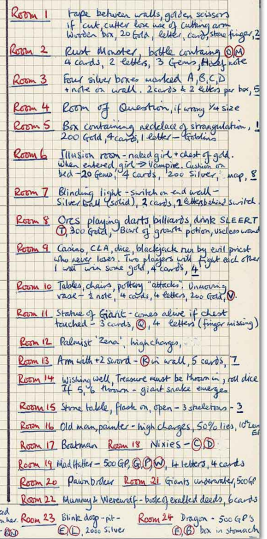 Room 1 tape between walls, golden scissors
if cut, cutter lose use of cutting arm
Wooden box, 20 Gold, letter, card, stone finger, 2
Room 2 Rust Monster, bottle containing O M
4 cards, 2 letters, 3 Gems, note
Room 3 Four silver boxes marked A, B, C, D
+ note on wall, 2 cards & 2 letters per box, 5
Room 4 Room of Question, if wrong 1/4 size
Room 5 Box containing necklace of strangulation, 1
200 Gold, 4 cards, 1 letter - Goblins
Room 6 Illusion room - naked girl + chest of gold.
once entered girl → Vampire. Cushion on
bed - 20 Gems, 4 cards, 200 Silver, map, 8
Room 7 Blinding light - switch on end wall -
Silver ball (solid), 2 cards, 2 letters behind switch.
Room 8 Orcs playing darts, billiards, drink SLEERT
T, 300 Gold, - Bowl of growth potion, useless wand
Room 9 Casino, CLA, dice, blackjack run by evil priest
who never loses. Two players will fight each other
1 will win some gold, 4 cards, 4
Room 10 Tables, chairs, pottery "attacks". Unmoving
vase - 1 note, 4 cards, 4 letters, 200 Gold, V
Room 11 Statue of Giant - comes alive if chest
touched - 3 cards, Q, 4 letters (finger missing)
Room 12 Palmist "Zena", high charges,
Room 13 Arm with +2 sword - K in wall, 5 cards, 7
Room 14 Wishing well, Treasure must be thrown in, roll dice
If 5, 6 thrown - giant snake emerges
Room 15 Stone table, flask on, open - 3 skeletons - 3
Room 16 Old man, painter - high charges, 50% lies,
Room 17 Boatman Room 18 Nixies - C D
Room 19 Mad Hatter - 500 GP, G, P, W, 4 letters, 4 cards
Room 20 Pawnbroker Room 21 Giants underwater, 500 GP
Room 22 Mummy & Werewolf - book of exalted deeds, 6 cards
Room 23 Blink dogs - pit - Room 24 Dragon - 500 GPS
E, L, 2000 Silver box in stomach